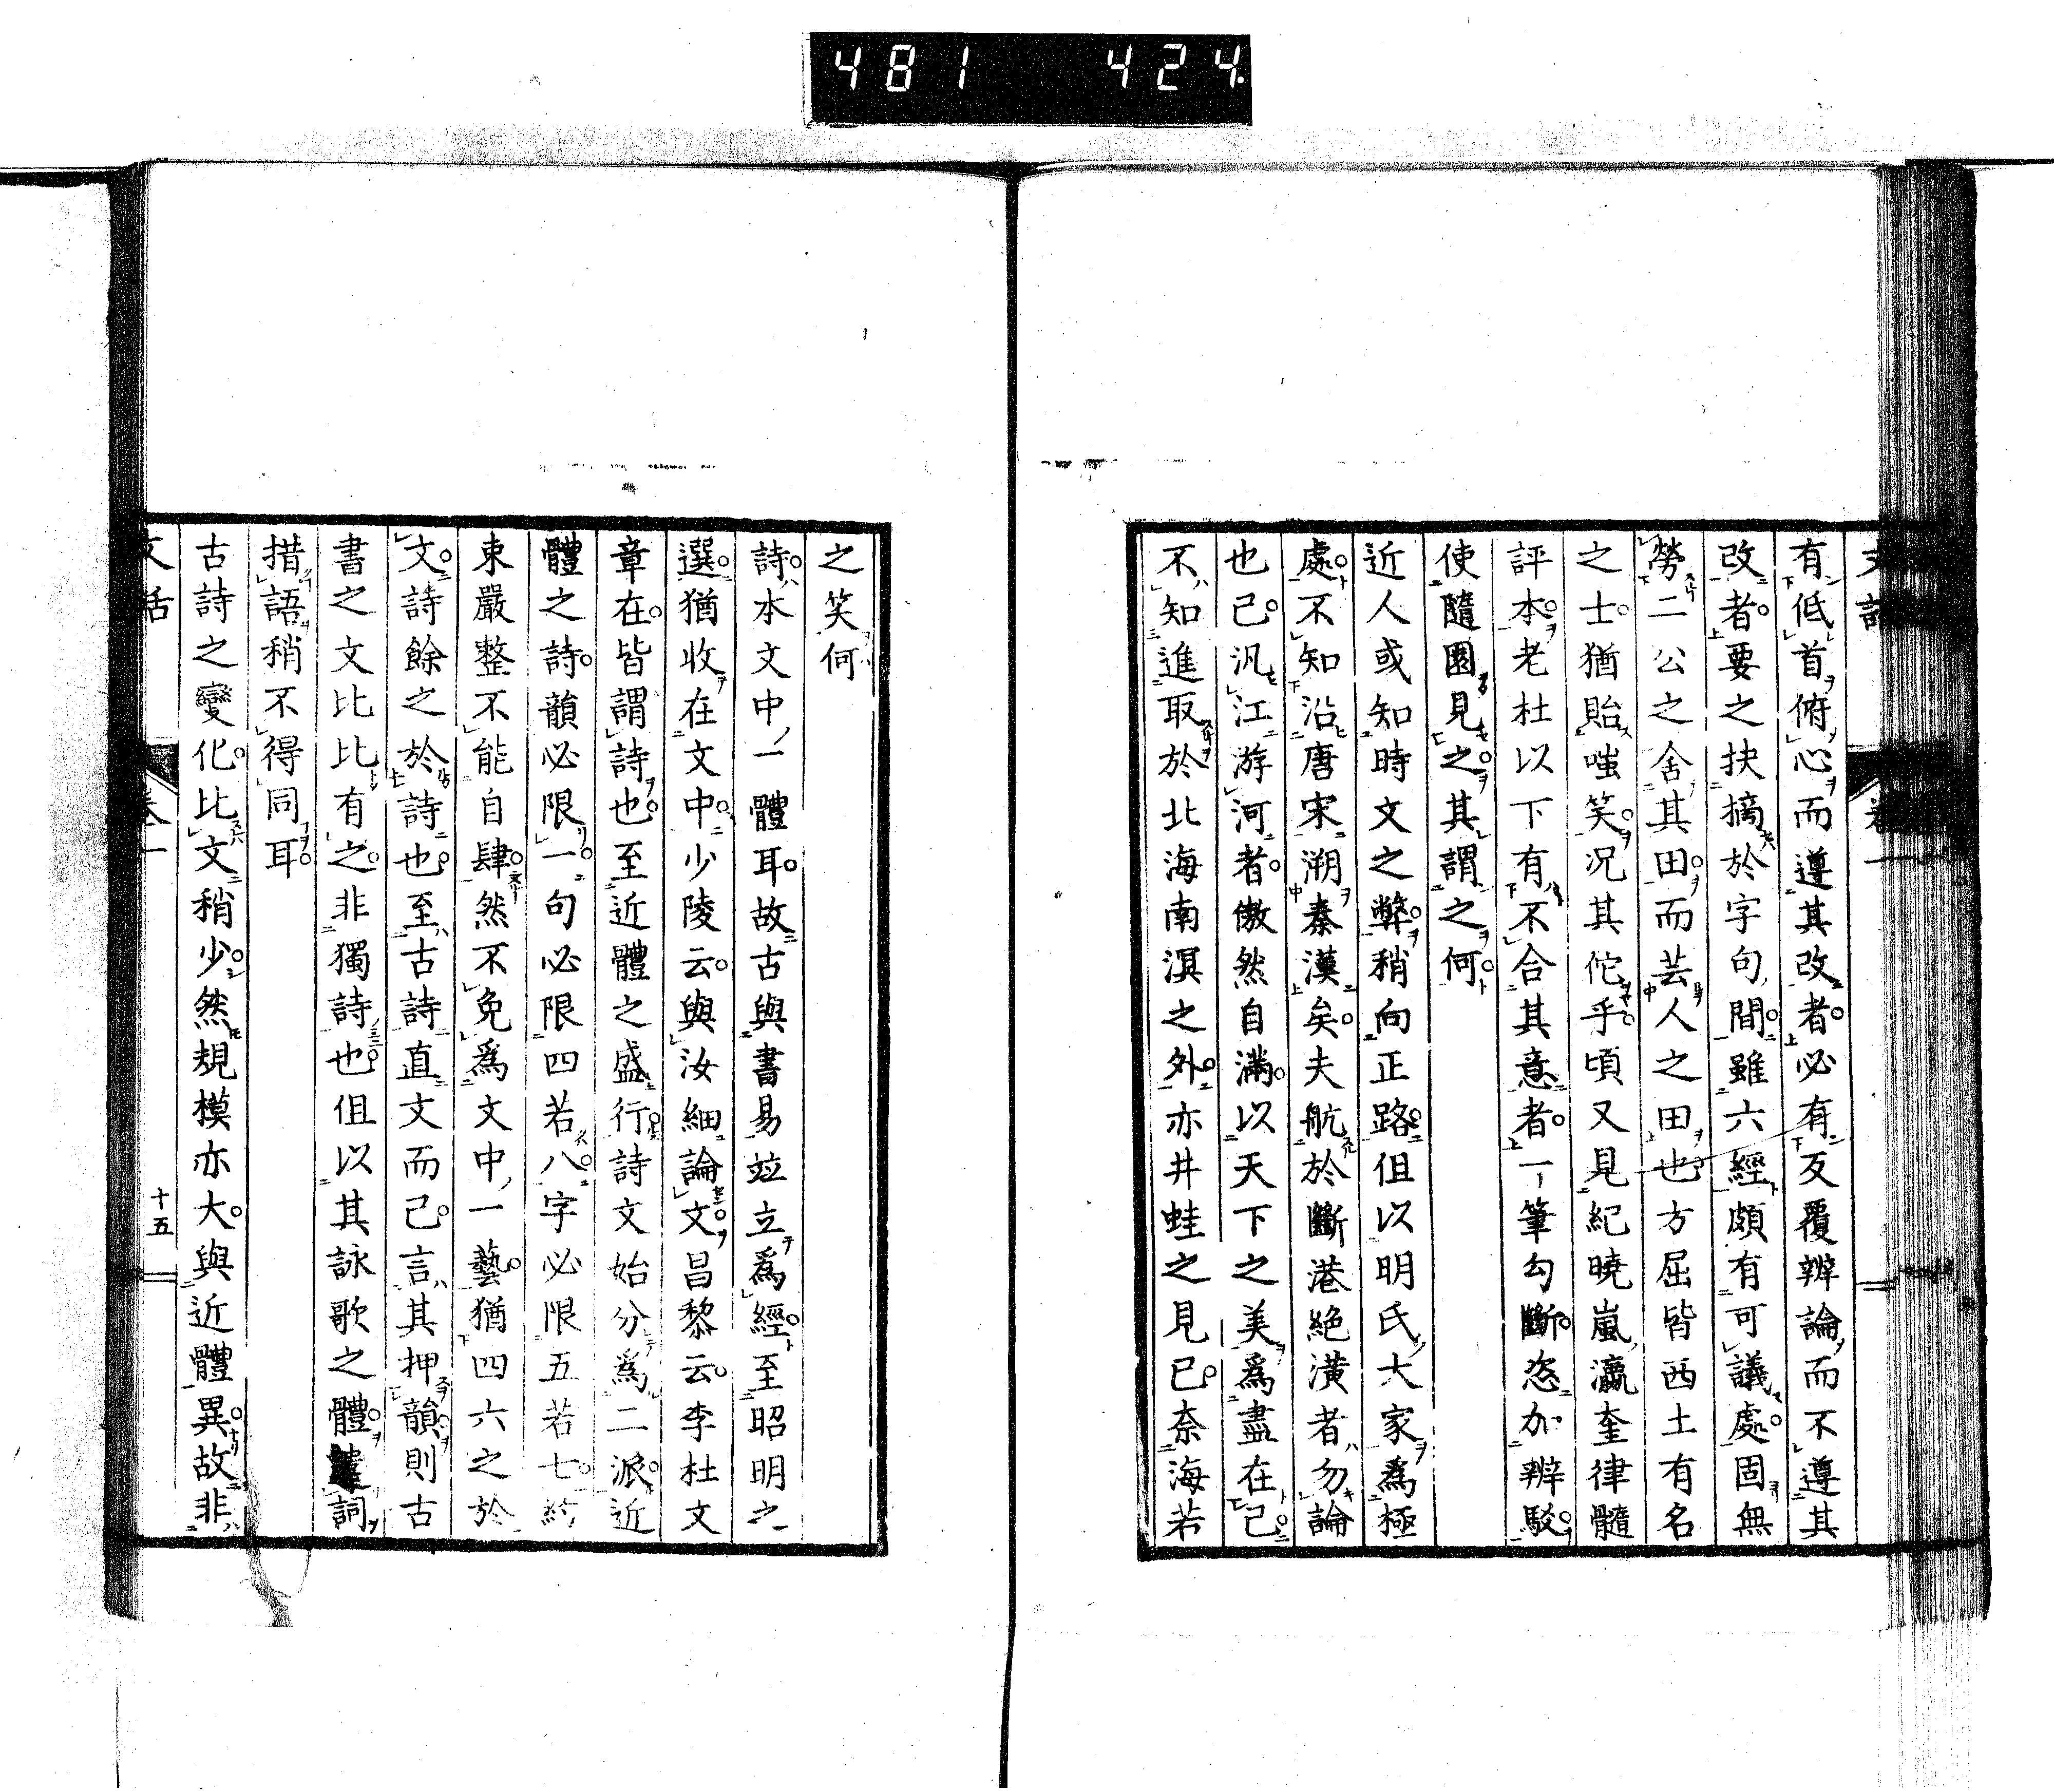 481 424
有低首俯心而遵其改者必有反覆辨論而不遵其
改者要之抉摘於字句間雖六經頗有可議處固無
勞二公之舍其田而芸人之田也方屈皆西土有名
之士猶貽嗤笑况其佗乎頃又見紀曉嵐瀛奎律髓
評本老杜以下有不合其意者一筆勾斷恣加辨駁
使隨園見之其謂之何
近人或知時文之弊稍向正路但以明氏大家爲極
處不知沿唐宋溯秦漢矣夫航於斷港絶潢者勿論
也已汎江游河者傲然自滿以天下之美爲盡在己
不知進取於北海南溟之外亦井蛙之見已奈海若
之笑何
詩本文中一體耳故古與書易竝立爲經至昭明之
選猶收在文中少陵云與汝細論文昌黎云李杜文
章在皆謂詩也至近體之盛行詩文始分爲二派近
體之詩韻必限一句必限四若八字必限五若七約
束嚴整不能自肆然不免爲文中一藝猶四六之於
文詩餘之於詩也至古詩直文而已言其押韻則古
書之文比比有之非獨詩也但以其詠歌之體遣詞
措語稍不得同耳
古詩之變化比文稍少然規模亦大與近體異故非
文話 卷一 十五